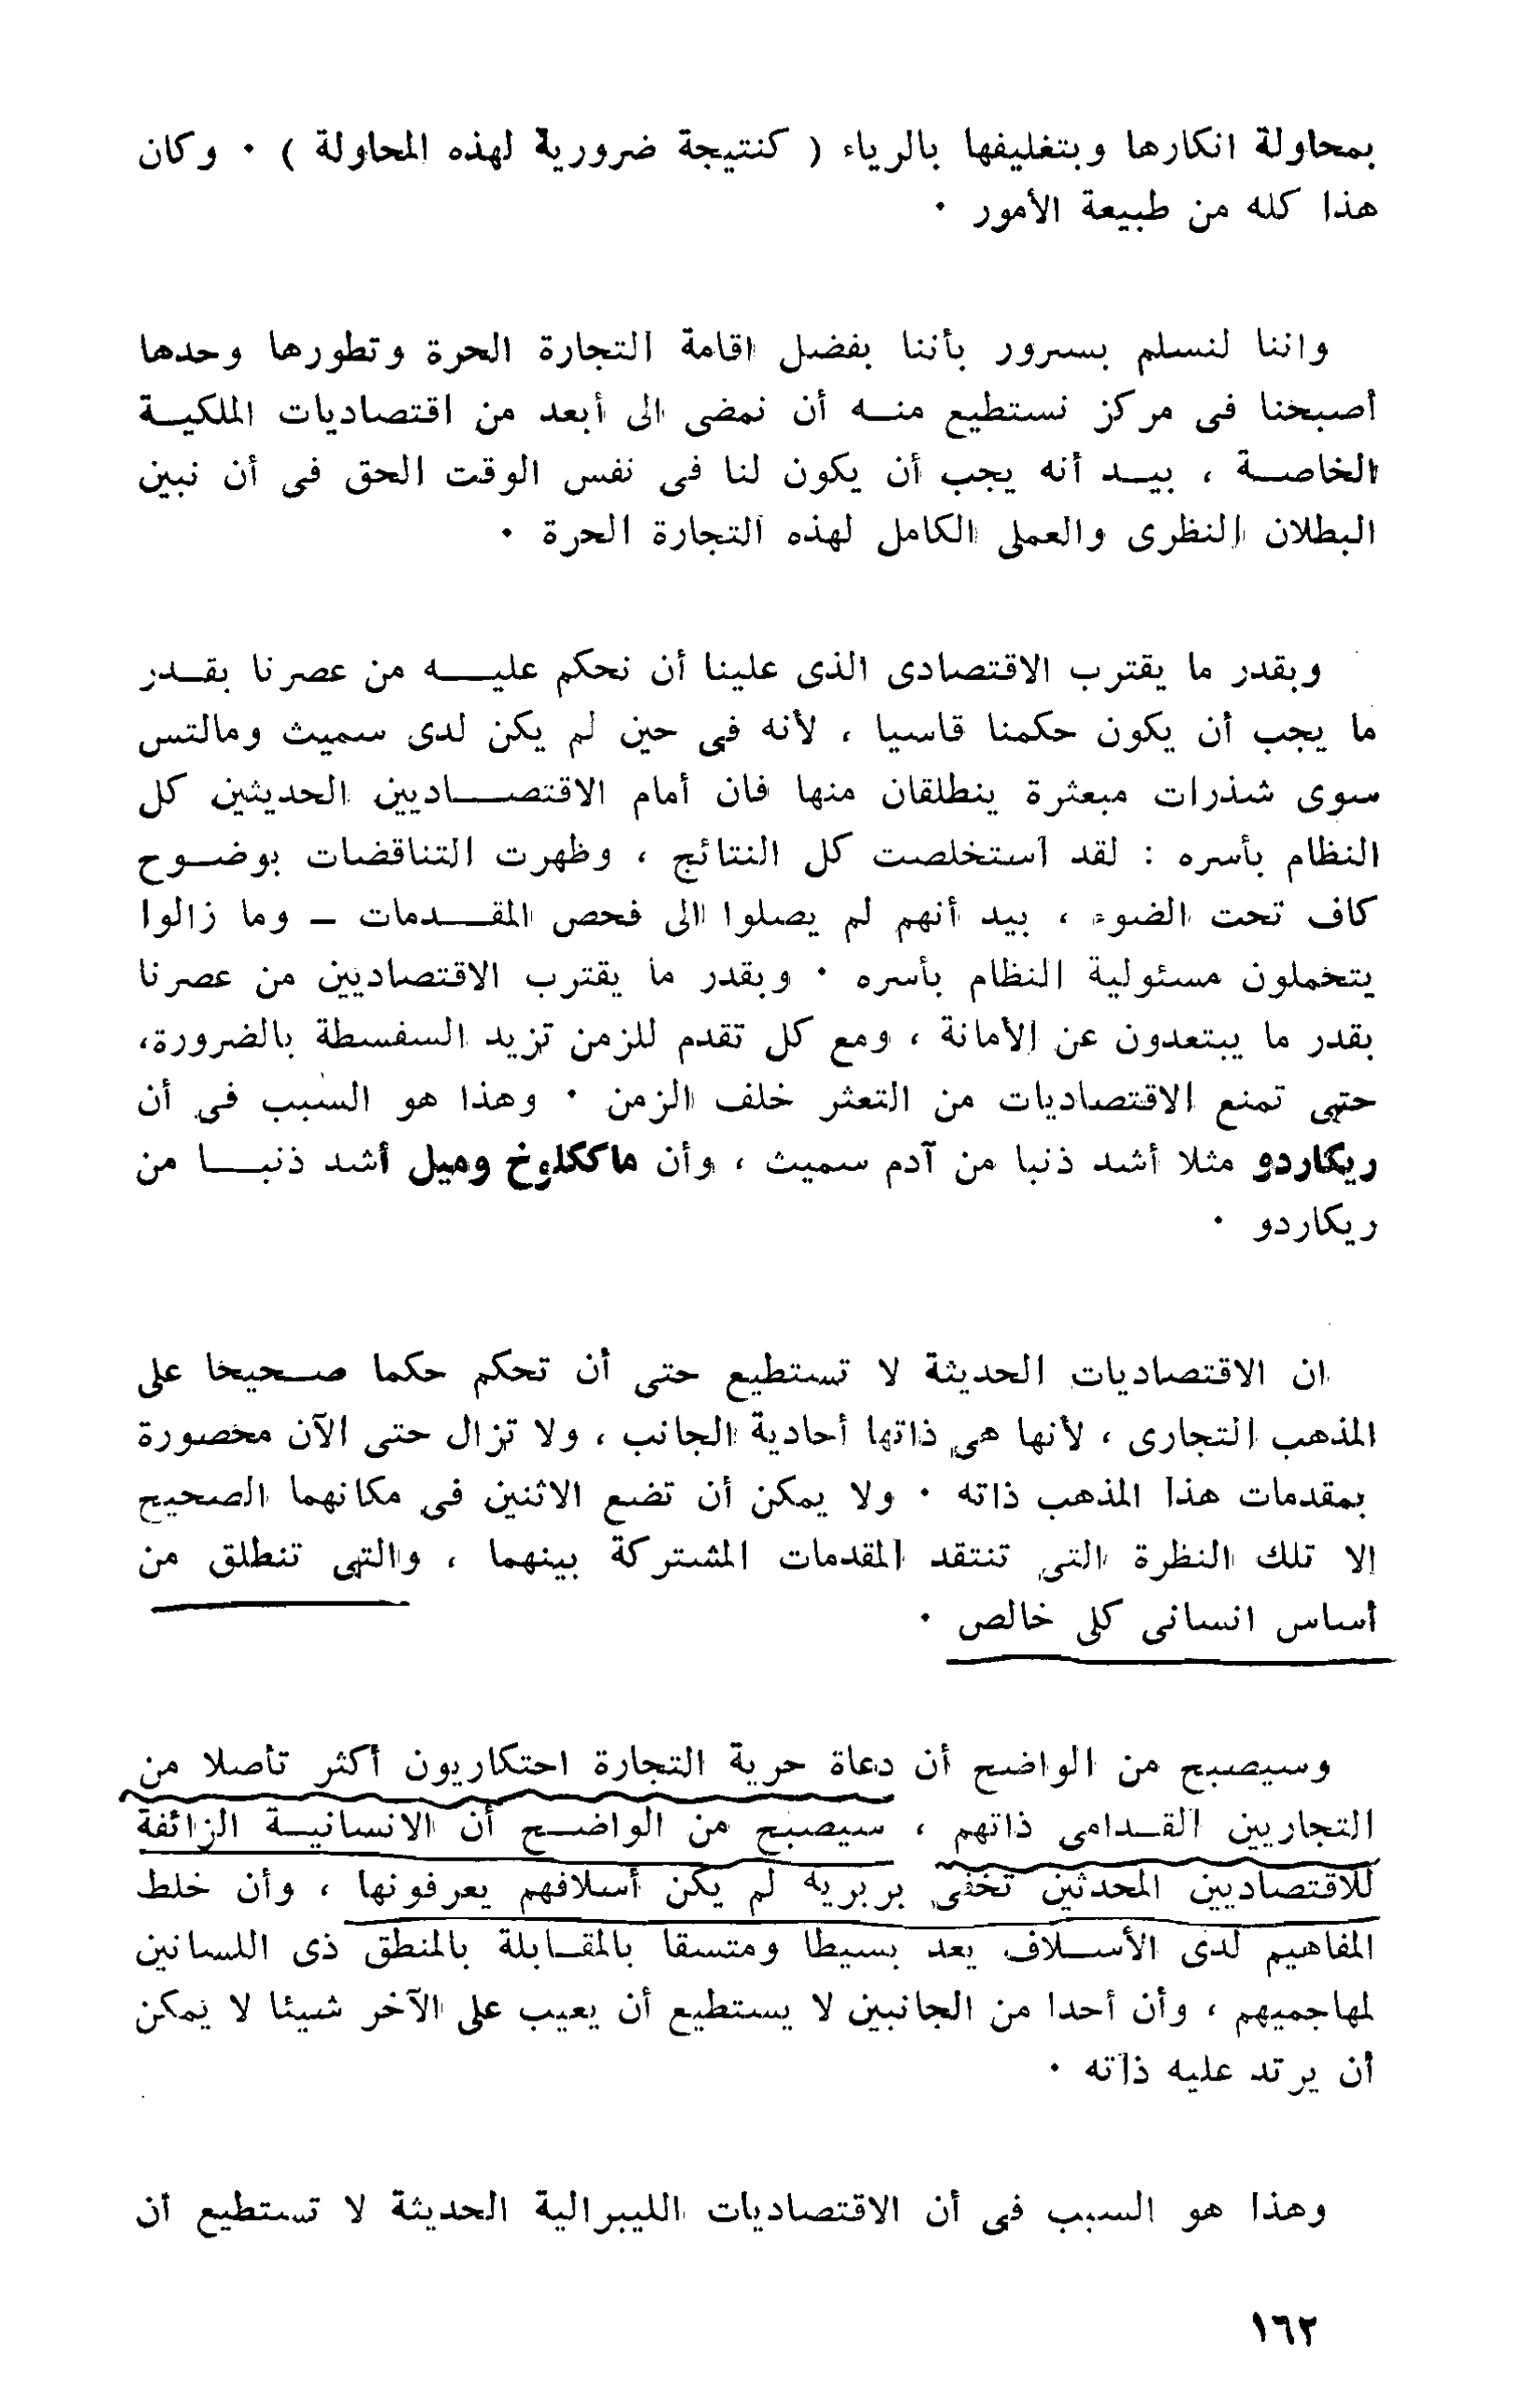 بمحاولة انكارها وبتغليفها بالرياء ( كنتيجة ضرورية لهذه المحاولة ) ٠ وكان
هذا كله من طبيعة الأمور ٠
واننا لنسلم بسرور بأننا بفضل اقامة التجارة الحرة وتطورها وحدها
أصبحنا فى مركز نستطيع منه أن نمضى الى أبعد من اقتصاديات الملكية
الخاصة ، بيد أنه يجب أن يكون لنا فى نفس الوقت الحق فى أن نبين
البطلان النظرى والعملى الكامل لهذه التجارة الحرة ٠
وبقدر ما يقترب الاقتصادى الذى علينا أن نحكم عليه من عصرنا بقدر
ما يجب أن يكون حكمنا قاسيا ، لأنه فى حين لم يكن لدى سميث ومالتس
سوى شذرات مبعثرة ينطلقان منها فان أمام الاقتصاديين الحديثين كل
النظام بأسره : لقد استخلصت كل النتائج ، وظهرت التناقضات بوضوح
كاف تحت الضوء ، بيد أنهم لم يصلوا الى فحص المقدمات – وما زالوا
يتحملون مسئولية النظام بأسره ٠ وبقدر ما يقترب الاقتصاديين من عصرنا
بقدر ما يبتعدون عن الأمانة ، ومع كل تقدم للزمن تزيد السفسطة بالضرورة،
حتى تمنع الاقتصاديات من التعثر خلف الزمن ٠ وهذا هو السبب فى أن
ريكاردو مثلا أشد ذنبا من آدم سميث ، وأن ماككلوخ وميل أشد ذنبا من
ريكاردو ٠
ان الاقتصاديات الحديثة لا تستطيع حتى أن تحكم حكما صحيحا على
المذهب التجارى ، لأنها هى ذاتها أحادية الجانب ، ولا تزال حتى الآن محصورة
بمقدمات هذا المذهب ذاته ٠ ولا يمكن أن تضع الاثنين فى مكانهما الصحيح
الا تلك النظرة التى تنتقد المقدمات المشتركة بينهما ، والتى تنطلق من
أساس انسانى كلى خالص ٠
وسيصبح من الواضح أن دعاة حرية التجارة احتكاريون أكثر تأصلا من
التجاريين القدامى ذاتهم ، سيصبح من الواضح أن الانسانية الزائفة
للاقتصاديين المحدثين تخفى بربرية لم يكن أسلافهم يعرفونها ، وأن خلط
المفاهيم لدى الأسلاف يعد بسيطا ومتسقا بالمقابلة بالمنطق ذى اللسانين
لمهاجميهم ، وأن أحدا من الجانبين لا يستطيع أن يعيب على الآخر شيئا لا يمكن
أن يرتد عليه ذاته ٠
وهذا هو السبب فى أن الاقتصاديات الليبرالية الحديثة لا تستطيع أن
١٦٢